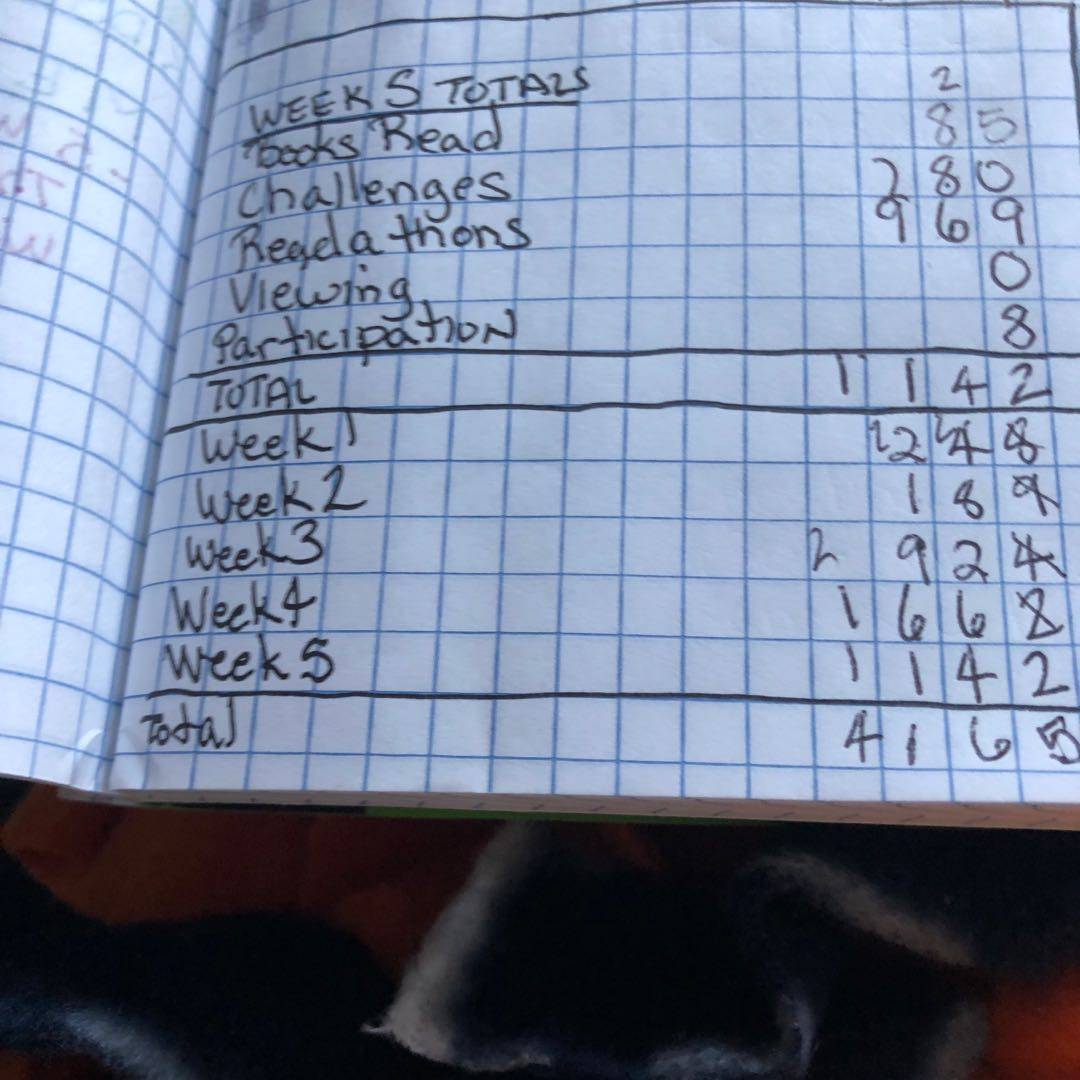 WEEK 5 TOTALS
2
Books Read 85
Challenges 2 80
Readathons 969
Viewing 0
Participation 8
TOTAL 1142
Week 1 2 2 2 4 8
Week 2 189
Week 3 2 924
Week 4 1662
Week 5 1142
Total 4165